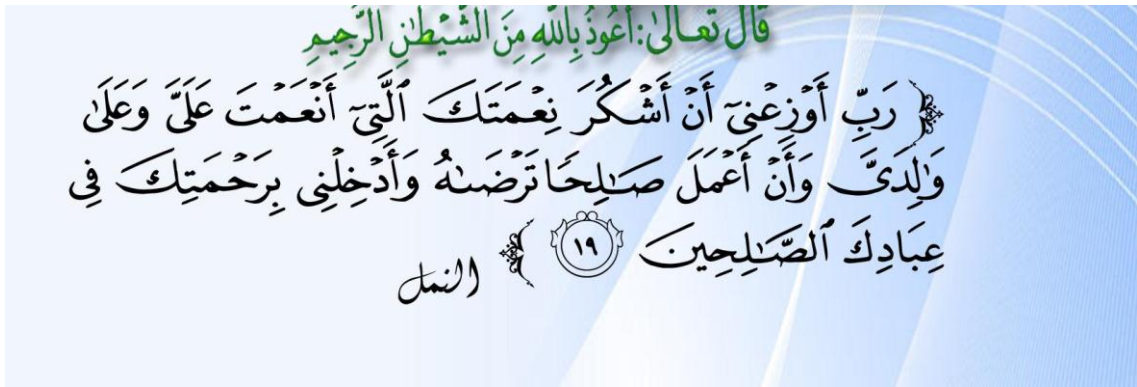 قال تعالى: أعُوذُ بِاللَّهِ مِنَ الشَّيْطٰنِ الرَّجِيمِ
﴿ رَبِّ أَوْزِعْنِيٓ أَنْ أَشْكُرَ نِعْمَتَكَ ٱلَّتِيٓ أَنْعَمْتَ عَلَيَّ وَعَلَىٰ
وَٰلِدَيَّ وَأَنْ أَعْمَلَ صَٰلِحًا تَرْضَىٰهُ وَأَدْخِلْنِي بِرَحْمَتِكَ فِي
عِبَادِكَ ٱلصَّٰلِحِينَ ١٩ ﴾
النمل